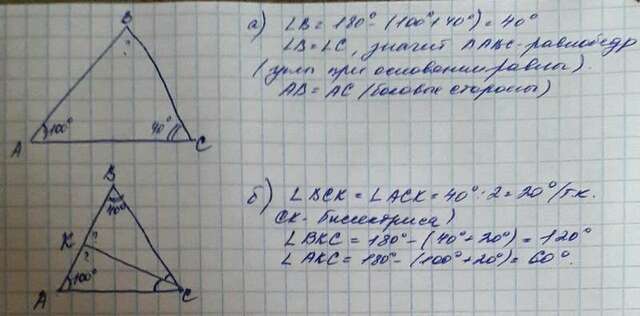 B
?
100°
40°
A
C
а) ∠B = 180° - (100° + 40°) = 40°
∠B = ∠C, значит △ABC - равнобедр
(углы при основании равны).
AB = AC (боковые стороны)
B
40°
K
?
?
100°
A
C
б) ∠BCK = ∠ACK = 40° : 2 = 20° (т.к.
CK - биссектриса)
∠BKC = 180° - (40° + 20°) = 120°
∠AKC = 180° - (100° + 20°) = 60°.